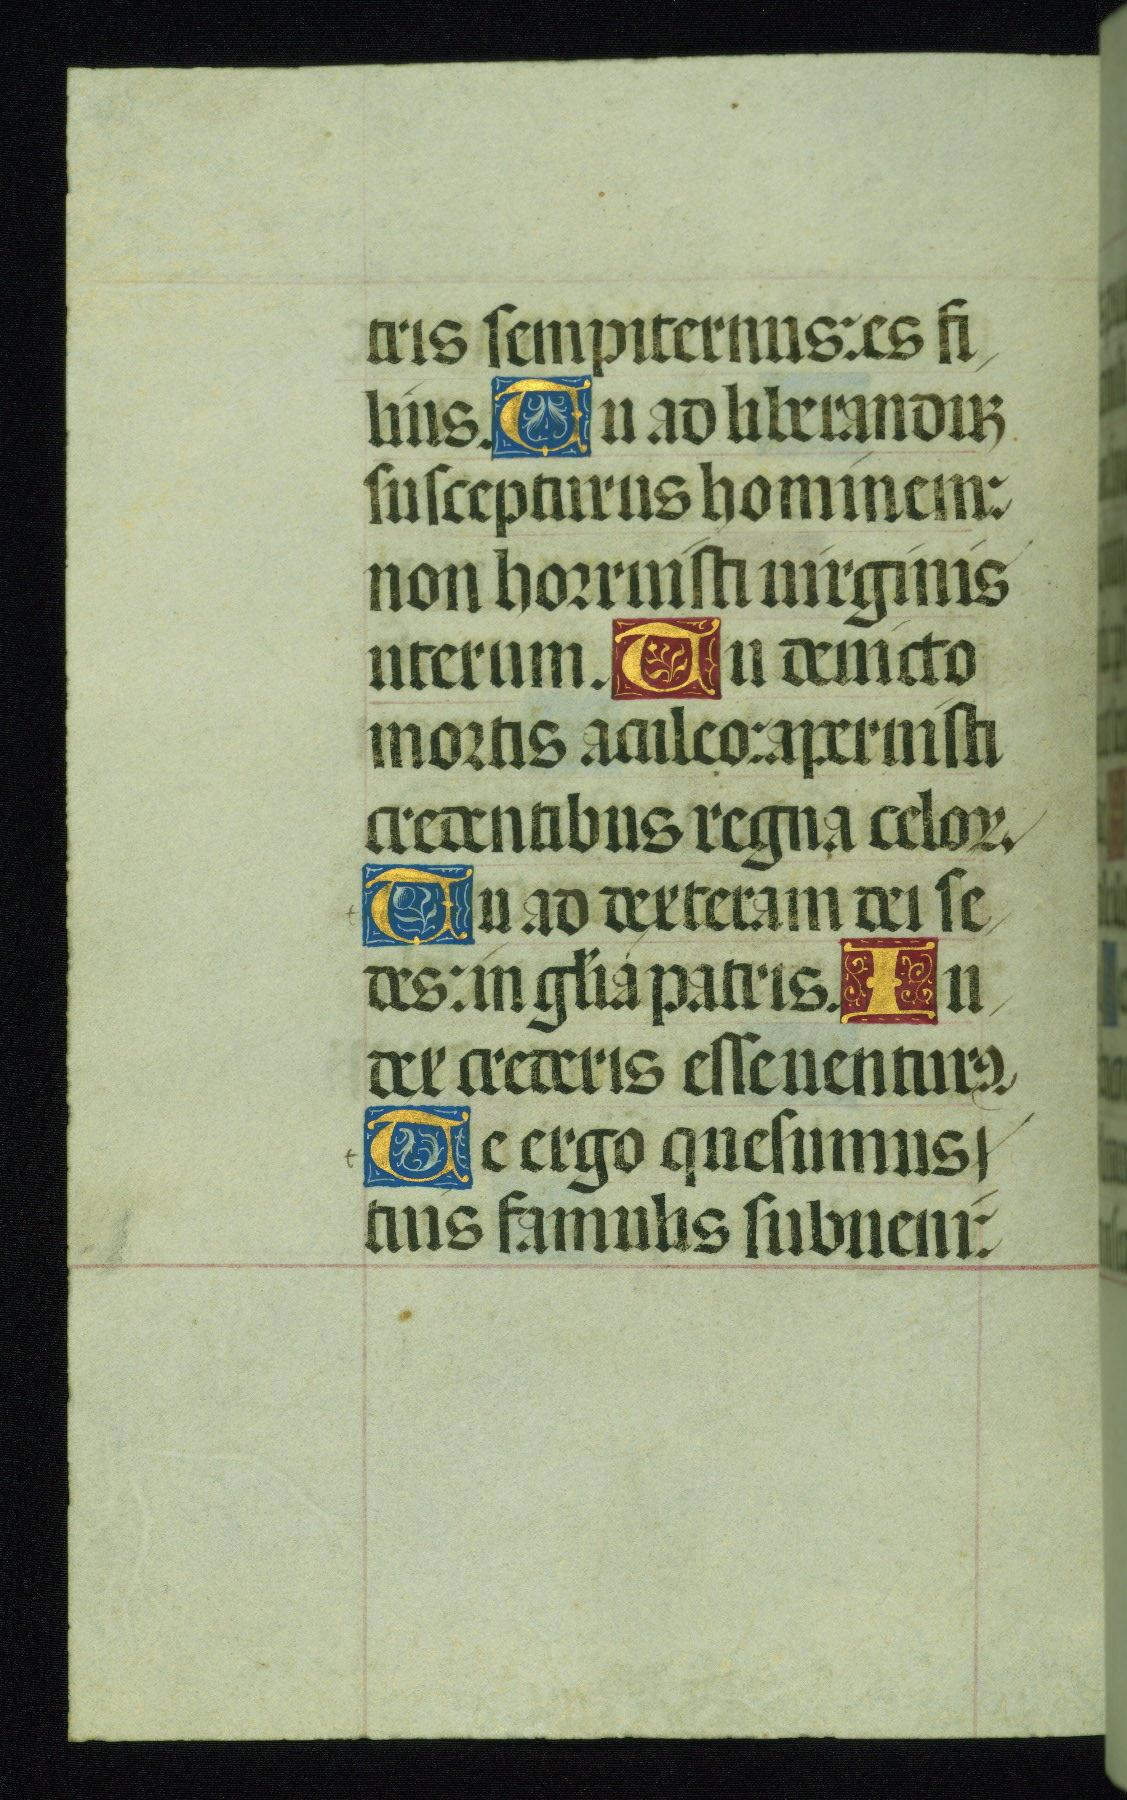 tris sempiternus: es fi
lius. Tu ad liberanduꝫ
suscepturus hominem:
non horruisti uirginis
uterum. Tu deuicto
mortis aculeo: aperuisti
credentibus regna celoꝝ.
Tu ad dexteram dei se
des: in gl̃ia patris. In
dex crederis esse uenturꝰ.
Te ergo quesumus
tuis famulis subueni: